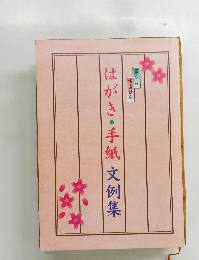 はがき・手紙 文例集